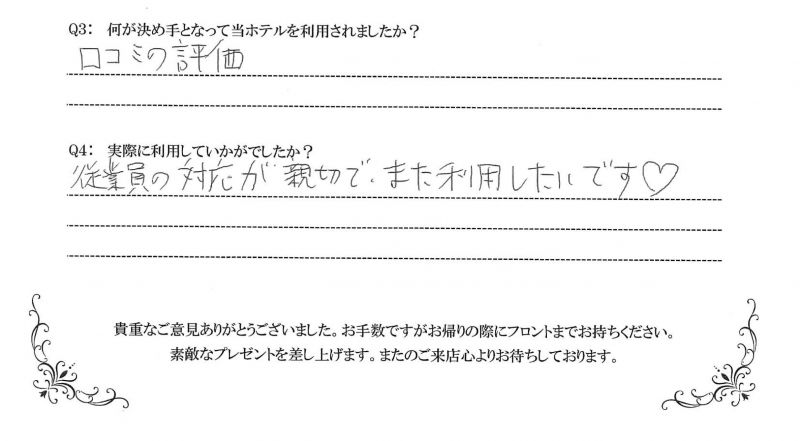 Q3: 何が決め手となって当ホテルを利用されましたか?
口コミの評価
Q4: 実際に利用していかがでしたか?
従業員の対応が親切で、また利用したいです♡
貴重なご意見ありがとうございました。お手数ですがお帰りの際にフロントまでお持ちください。
素敵なプレゼントを差し上げます。またのご来店心よりお待ちしております。